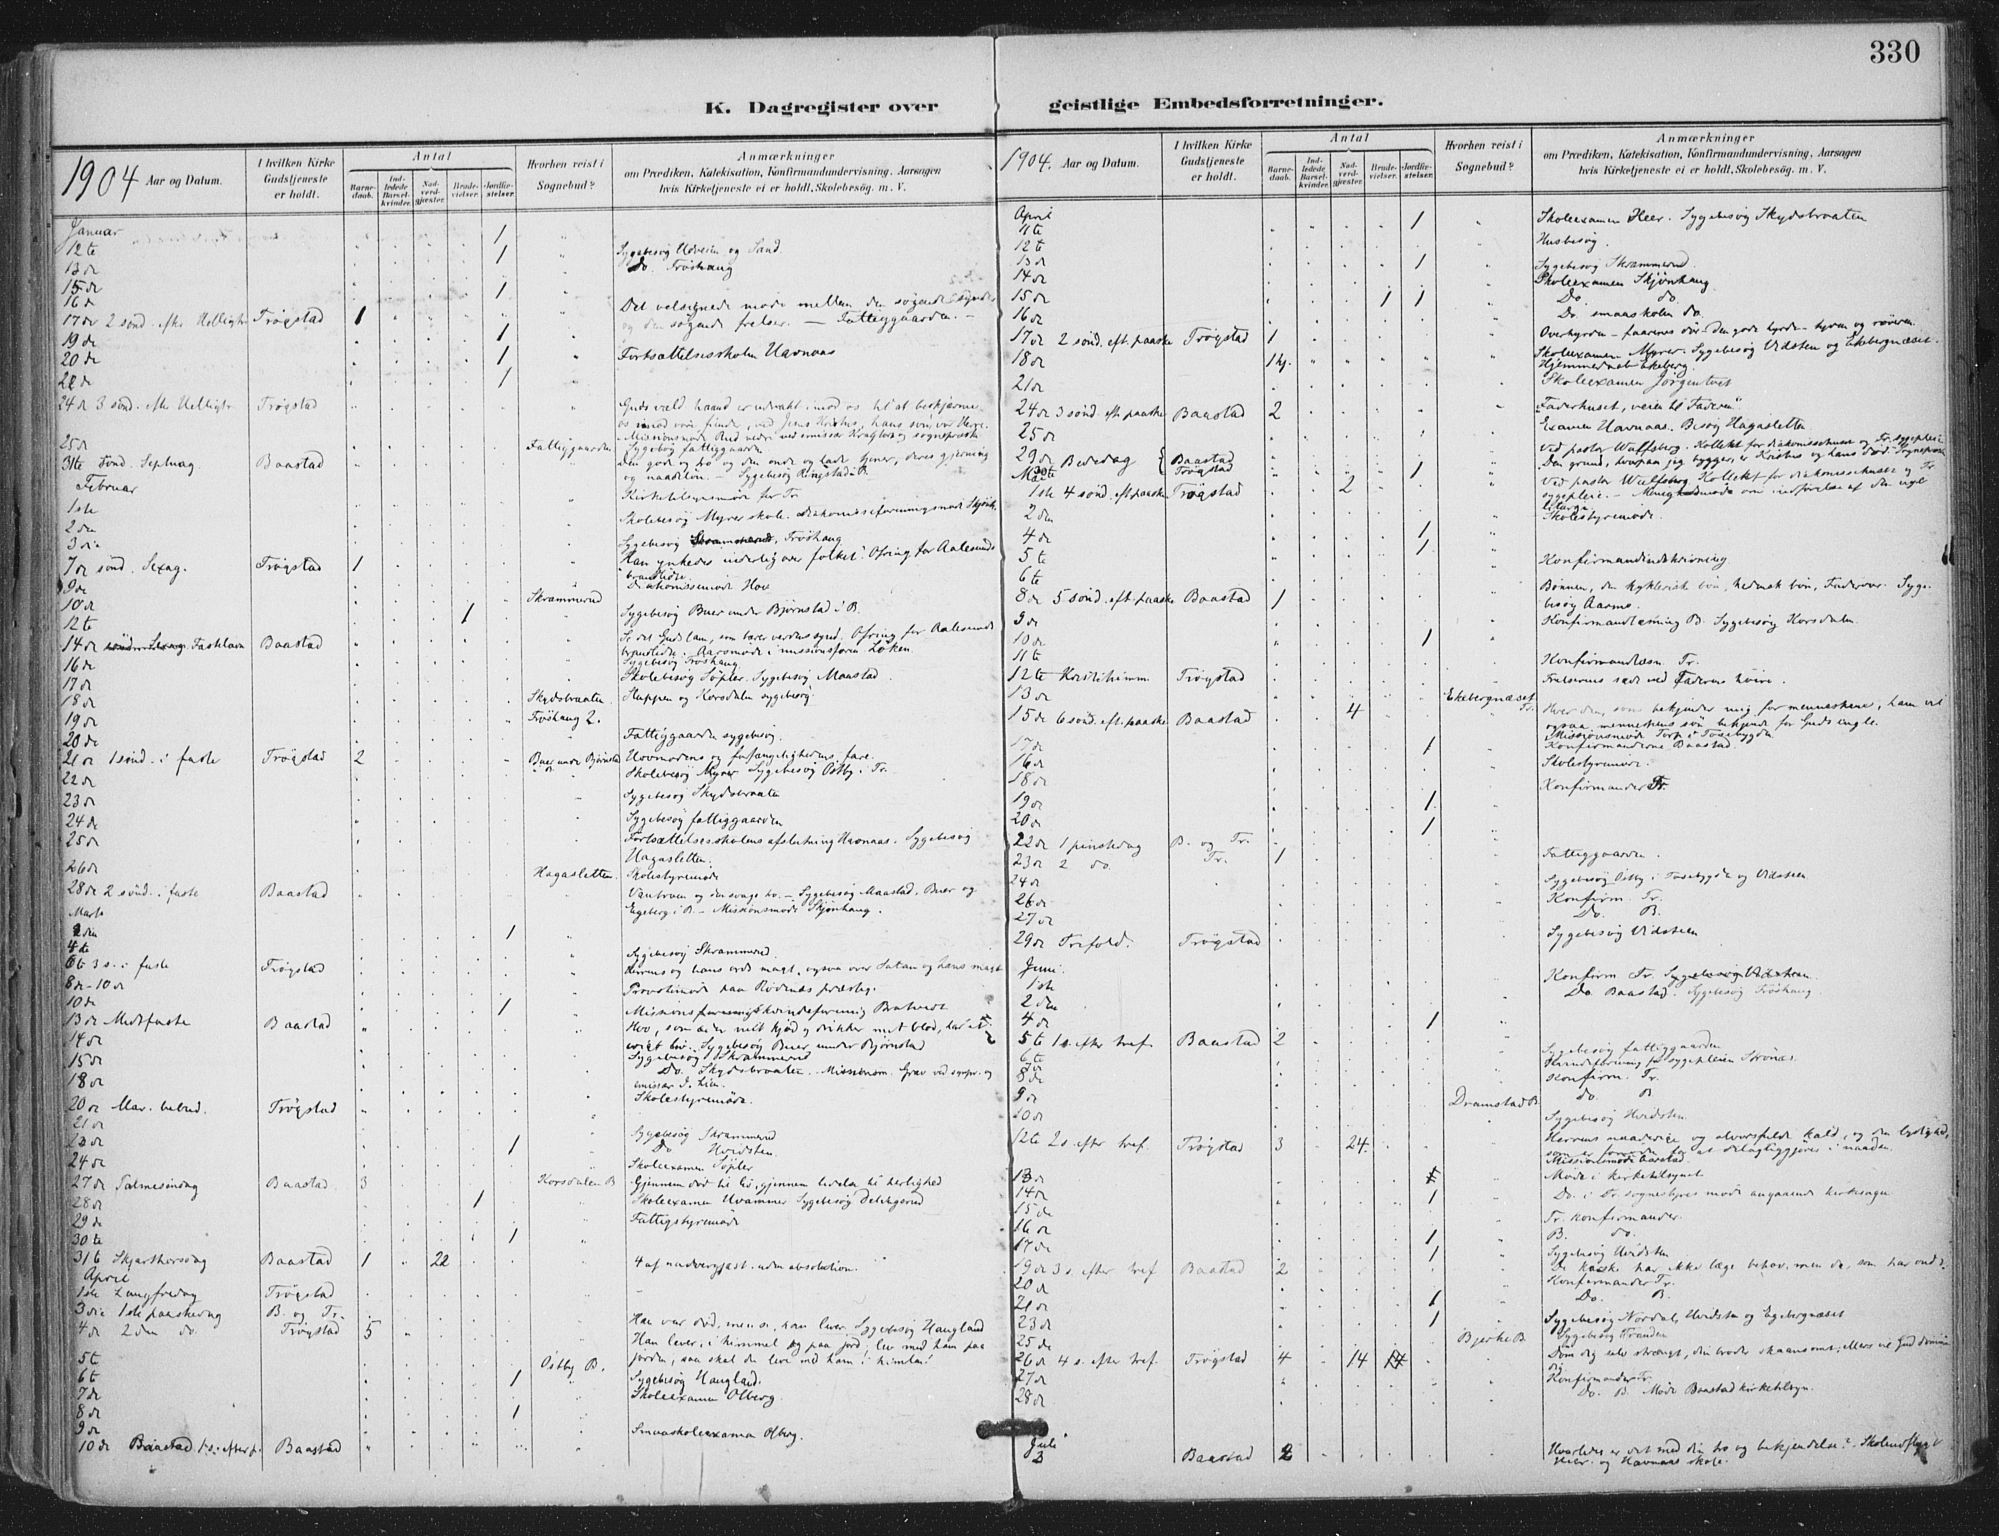 330
K. Dagregister over geistlige Embedsforretninger.
1904 Aar og Datum.
I hvilken Kirke Gudstjeneste er holdt.
Antal
Barnedaab.
Indledede Barselkvinder.
Nadverdgjæster.
Brudevielser.
Jordfæstelser.
Hvorhen reist i Sognebud?
Anmærkninger
om Prædiken, Katekisation, Konfirmandundervisning, Aarsagen
hvis Kirketjeneste ei er holdt, Skolebesøg. m. V.
Januar
12te 1
13de 1 Sygebesøg og Sand
15de Do. Trøshaug
16de 1
17de 2 sønd. eft. Helligtr. Trøgstad 1 Det velsignede møde mellem den søgende synder
19de 1 og den søgende frelser. — Fattiggaarden. —
20de 1 Fortsættelsesskolen Havnaas
22de 1
24de 3 sønd. eft. Helligtr. Trøgstad Guds haand er udrakt imod os til at beskjærme
os mod vore fiender, ved Jesus Kristus, hans søn vor Herre.
25de Fattiggaarden Sygebesøg fattiggaarden
31te Sønd. Septuag Baastad Den gode og tro og den onde og lade tjener, deres gjerning
og naadeløn. — Sygebesøg Ringstad i B.
Februar
Kirketilsynsmøde for Tr.
1ste
2den Skolebesøg Myrer skole.
3die Sygebesøg Skrammerud, Trøshaug
7de sønd. Sexag. Trøgstad 1 Han ynkedes inderlig over folket! Ofring for Aalesunds
brandlidte.
9de Diakonissemøde Hov
10de Skrammerud
12te 1 Sygebesøg Buer under Bjørnstad i B.
14de Fastelavn Baastad Se det Guds lam, som bærer verdens synd. Ofring for Aalesunds
brandlidte. Aarsmøde i missionsforen. Løken.
16de Sygebesøg Trøshaug
17de Skolebesøg Søpler. Sygebesøg Maastad.
18de Skydsbraaten Huppen og Korsdalen sygebesøg.
19de Trøshaug 2.
20de Fattiggaarden sygebesøg.
21de 1 sønd. i faste Trøgstad 2 Buer under Bjørnstad Hovmodens og forfængelighedens fare.
22de Skolebesøg Myrer Sygebesøg Østby i Tr.
23de Sygebesøg Skydsbraaten
24de Sygebesøg fattiggaarden
25de Fortsættelsesskolens afslutning Havnaas. Sygebesøg
Hagasletten.
26de Hagasletten Skolestyremøde
28de 2 sønd. i faste Baastad Vantroen og den svage tro. — Sygebesøg Maastad, Buer og
Egeberg i B. — Missionsmøde Skjønhaug.
Marts
2den 1
4de Sygebesøg Skrammerud
6te 3 s. i faste Trøgstad Herrens og hans ords magt, ogsaa over Satan og hans magt
8de-10de Provstimøde paa Rødenæs præstegd.
10de 1 Missionsforening Kvindeforening
13de Midtfaste Baastad Hvo, som æder mit kjød og drikker mit blod, har et
14de evigt liv. Sygebesøg Buer under Bjørnstad
15de Sygebesøg Skrammerud
18de Do. Skydsbraaten. Missionsm. Grav ved sognepr. og
emissær J. Lien
20de Mar. bebud. Trøgstad Skolestyremøde.
21de
23de Sygebesøg Skrammerud
24de 1 Do Hvidsten.
Skoleexamen Søpler
27de Palmesøndag Baastad 3 Korsdalen B Gjennem død til liv, gjennem lidelse til herlighed
28de 1 Skoleexamen Hvammer Sygebesøg
29de Fattigstyremøde
30te 1
31te Skjærthorsdag Baastad 1 22 4 af nadvergjæst. uden absolution.
April
1ste Langfredag Trøgstad
3die 1ste paaskedag B. og Tr.
4de 2den do. Trøgstad 5 Han var død, men se, han lever. Sygebesøg Haugland
Han lever, i himmel og paa jord; lev med ham paa
5te Østby B. jorden, saa skal du leve med ham i himlen!
6te 1 Sygebesøg Haugland.
7de Skoleexamen Olberg.
8de 1
9de Smaaskoleexamen Olberg.
10de Baastad 1 s. efter p. Baastad
1904. Aar og Datum.
I hvilken Kirke Gudstjeneste er holdt.
Antal
Barnedaab.
Indledede Barselkvinder.
Nadverdgjæster.
Brudevielser.
Jordfæstelser.
Hvorhen reist i Sognebud?
Anmærkninger
om Prædiken, Katekisation, Konfirmandundervisning, Aarsagen
hvis Kirketjeneste ei er holdt, Skolebesøg. m. V.
April
11te 1 Skoleexamen Heer. Sygebesøg Skydsbraaten
12te Husbesøg.
13de 1 Sygebesøg Skrammerud
14de Skoleexamen Skjønhaug
15de 1 1 Do. do.
16de Do. smaaskolen do.
17de 2 sønd. eft. paaske Trøgstad 1 Overhyrden — faarenes dør — Den gode hyrde — tyven og røveren.
18de 1 hj. Skoleexamen Myrer. Sygebesøg Vidsten og Ekebergnæset.
Hjemmedaab Ekeberg.
21de Skoleexamen Jørgentvet
24de 3 sønd. eft. paaske Baastad 2 "Faderhuset, veien til Faderen".
25de Examen Havnaas. Besøg Hagasletten
29de Bededag Baastad Ved pastor Wulfsberg. Kollekt for diakonissehuset og Tr. sygepleie
Trøgstad Den grund, hvorpaa jeg bygger, er Kristus og hans død.
Mai 1 Ved pastor Wulfsberg Kollekt for diakonissehuset og Tr.
1ste 4 sønd. eft. paaske Trøgstad 2 sygepleie. — Menighedsmøde om indførelse af den nye
liturgi.
2den Skolestyremøde.
4de 1
5te 1 Konfirmandindskrivning
6te
8de 5 sønd. eft. paaske Baastad 1 Bønnen, den hyklerisk bøn, hedensk bøn, Fadervor. Sygebesøg Aarmo.
9de Konfirmandlæsning B. Sygebesøg Korsdalen.
10de 1
11te Konfirmandlæsn. Tr.
12te Kristi himm. Trøgstad Frelserens sæde ved Faderens høire.
13de Ekebergnæset Tr.
15de 6 sønd. eft. paaske Baastad 4 Hver den, som bekjender mig for menneskene, ham vil
ogsaa menneskens søn bekjende for Guds engle.
Missionsmøde Torp i Tosebygden
17de 1 Konfirmanderne Baastad.
16de Skolestyremøde.
18de Konfirmander Tr.
19de 1
20de 1
22de 1 pinsedag B. og Tr.
23de 2 do. Tr. 1 Fattiggaarden.
24de Sygebesøg Østby i Tosebygden og Vidsteen
26de Konfirm. Tr.
27de Do. B.
29de Trefold. Trøgstad Sygebesøg Vidsteen
Juni
1ste Konfirm Tr. Sygebesøg Vidsteen.
2den Do. Baastad. Sygebesøg Trøshaug.
4de 1
5te 1 s. efter tref. Baastad 2
6te Sygebesøg fattiggaarden
7de Kvindeforening for sygepleien
8de Konfirm. Tr.
9de Dramstad B. do. B.
10de Sygebesøg Hvidsten.
12te 2 s. efter tref. Trøgstad 3 24 Herrens naaderige og alvorsfulde kald, og den lydighed,
Missionsmøde Baastad.
13de 1 Møde i kirketilsynet
14de 1 Do. i Tr. sognestyres møde angaaende kirkesagen
15de Tr. konfirmander.
16de 1 B. do.
17de 1 Sygebesøg Hvidsten
19de 3 s. efter tref Baastad 2 De raske har ikke læge behov, men de, som har ondt.
20de Konfirmander Tr.
21de 1 Do. B.
23de 1 Sygebesøg Nordal, Hvidsten og Egebergnæset
25de Bjerke B. Sygebesøg Tranden
26de 4 s. efter tref. Trøgstad 4 14 Døm dig selv strængt, din broder skaansomt; ellers vil Gud dømme
dig
27de Konfirmander Tr.
28de Do. B. Møde Baastad kirketilsyn.
Juli
3 Baastad 2 Hvorledes er det med din tro og bekjendelse?
Heer og Havnaas skole.